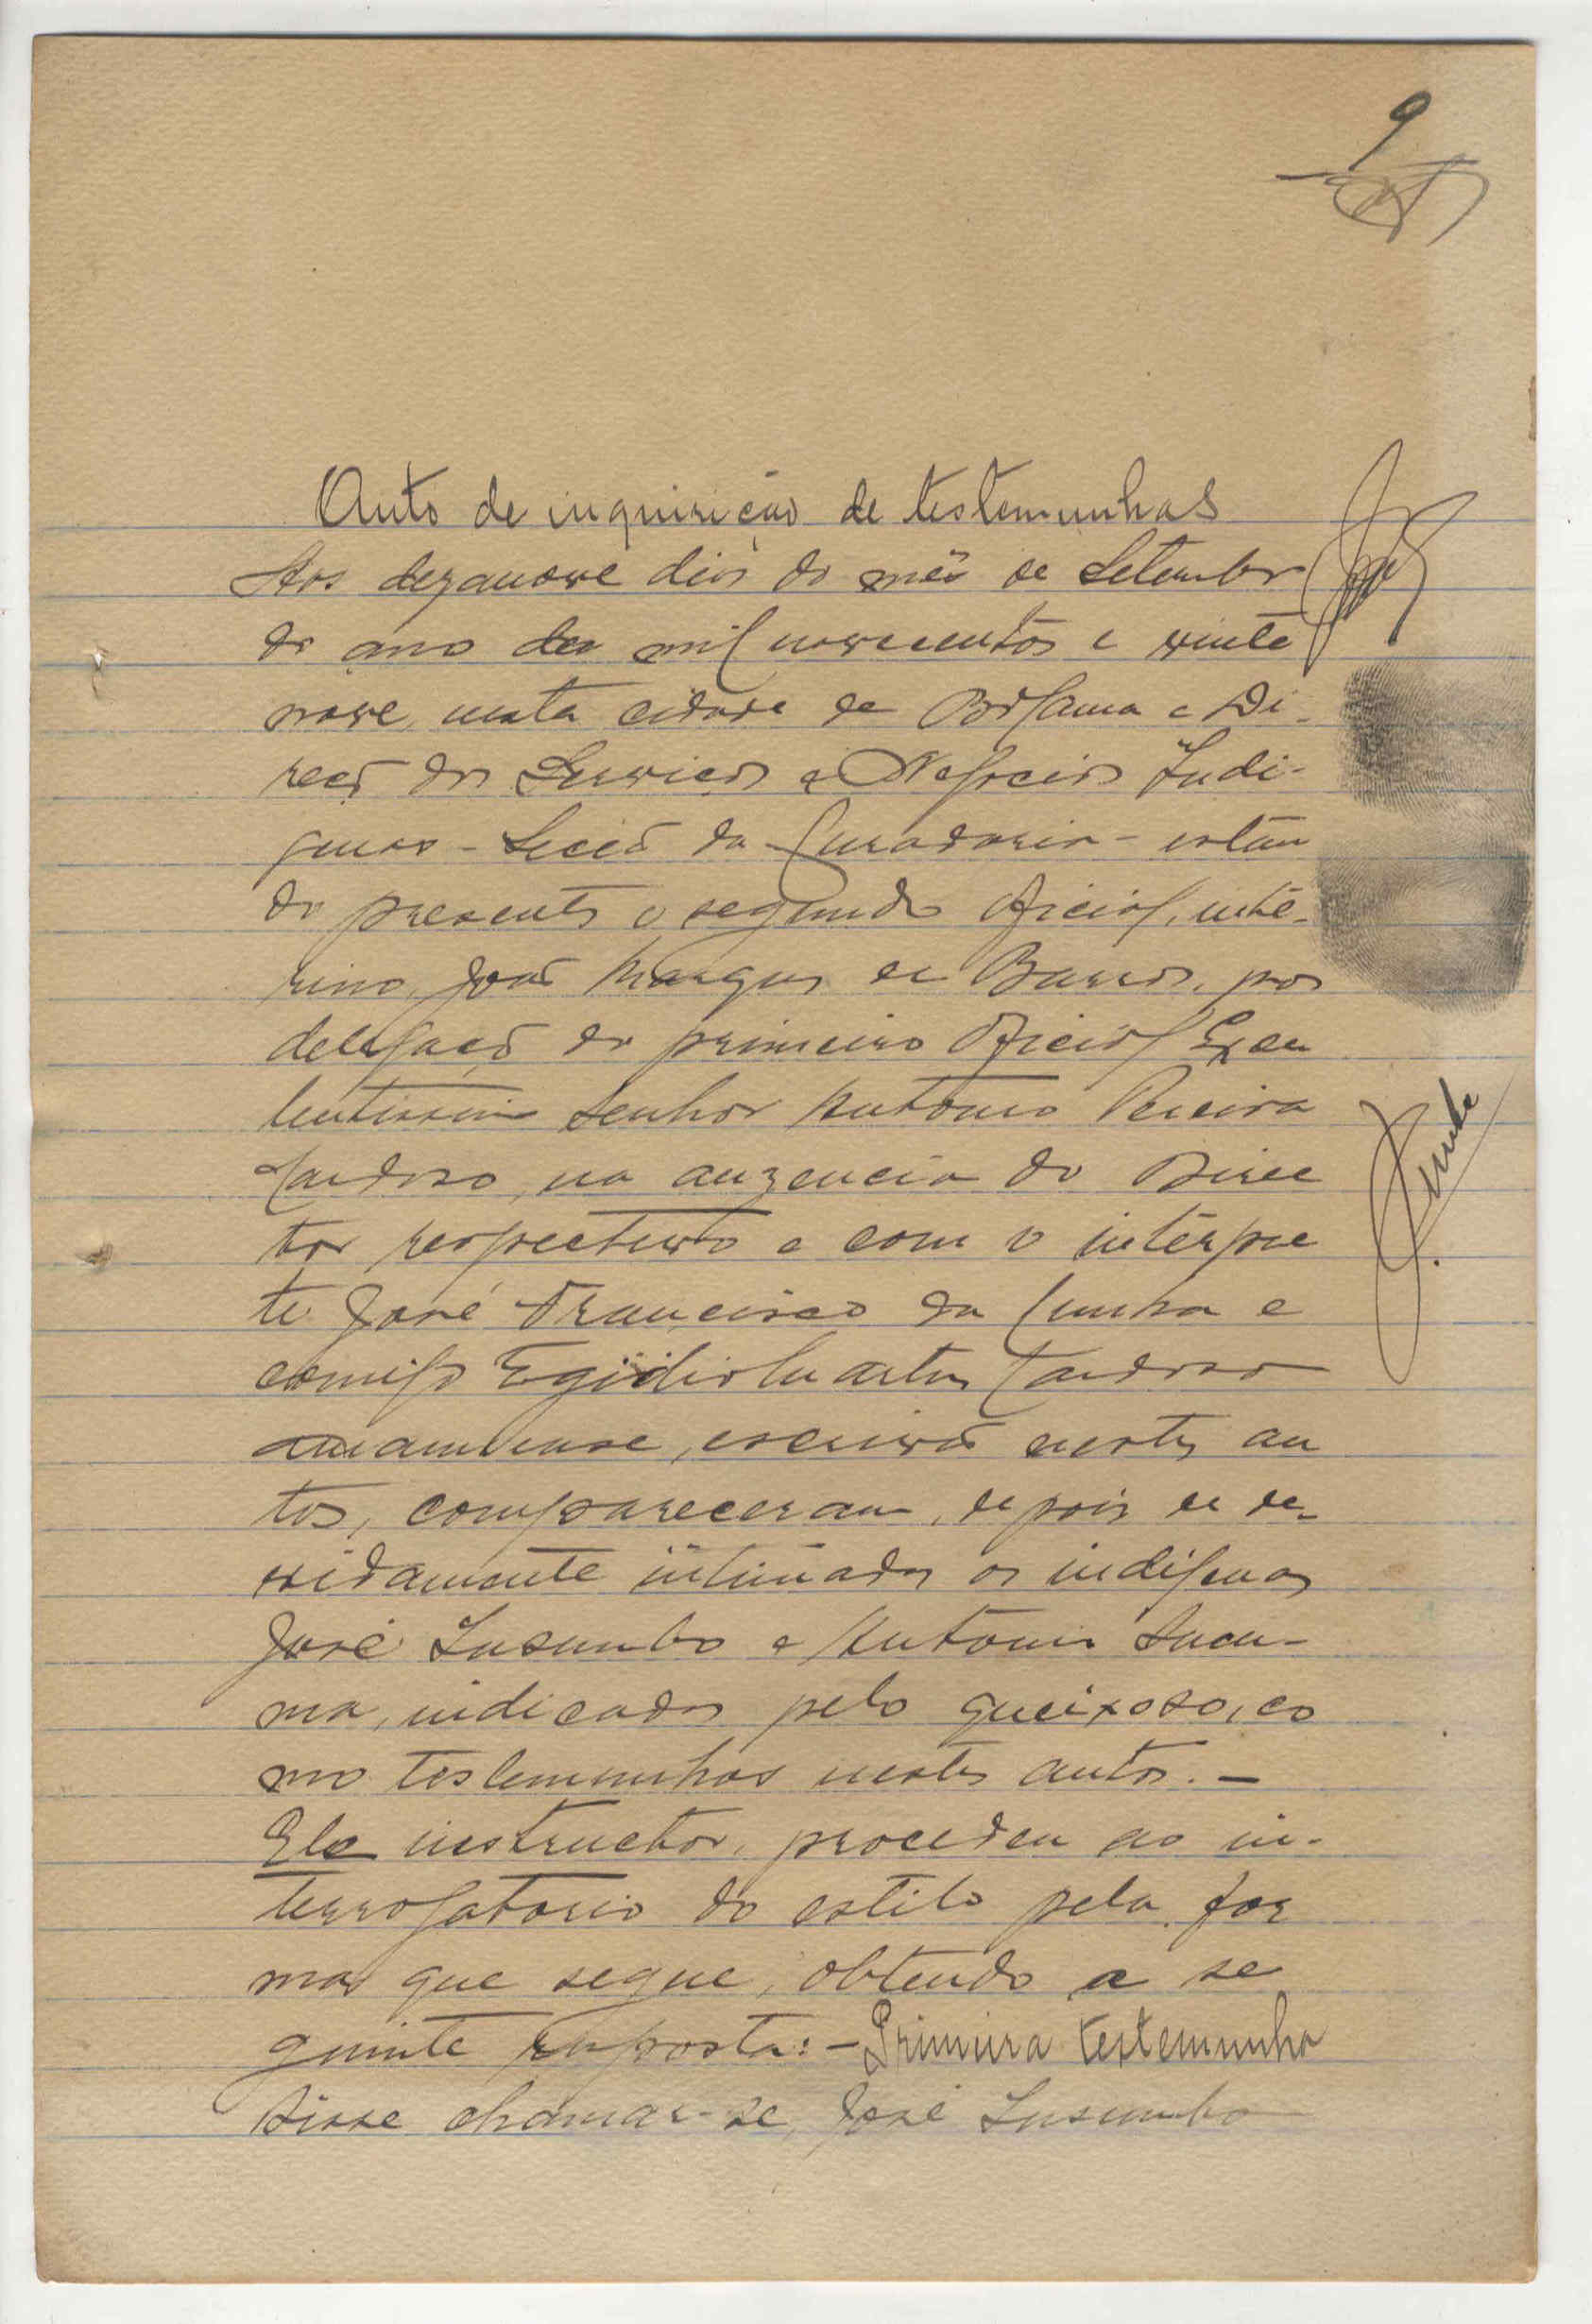 9
Auto de inquirição de testemunhas
Aos dezanove dias do mês de Setembro
do ano de mil novecentos e vinte
nove, nesta cidade de Bolama e Di-
recçã dos Serviços e Negocios Indi-
genas - Secçã da Curadoria - estan
do presente o segundo oficial, inté-
rino, João Marques de Barros, por
delegaçã do primeiro Oficial Exce
lentissimo Senhor Antonio Pereira
Cardoso, na auzencia do Direc
tor respectivo e com o intérpre
te José Francisco da Cunha e
comigo Egidio Martins Cardoso
amanuense, escrivão nestes au
tos, compareceram, depois de de-
vidamente intimados os indigenas
José Lusumbo e Antonio
indicados pelo queixoso, co
mo testemunhas nestes autos. -
Ele instructor, procedeu ao in-
terrogatorio do estilo pela for
ma que segue, obtendo a se
guinte resposta: - Primeira testemunha
Disse chamar-se, José Lusumbo